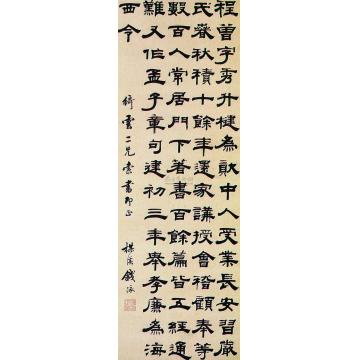 程曾字秀升為中人受業長安習嚴
氏春秋積十餘年還家講授會稽顧奉等
數百人常居門下著書百餘篇皆五經通
難又作孟子章句建初三年舉孝廉為海
西令
雲二兄索書即正
楳溪錢泳